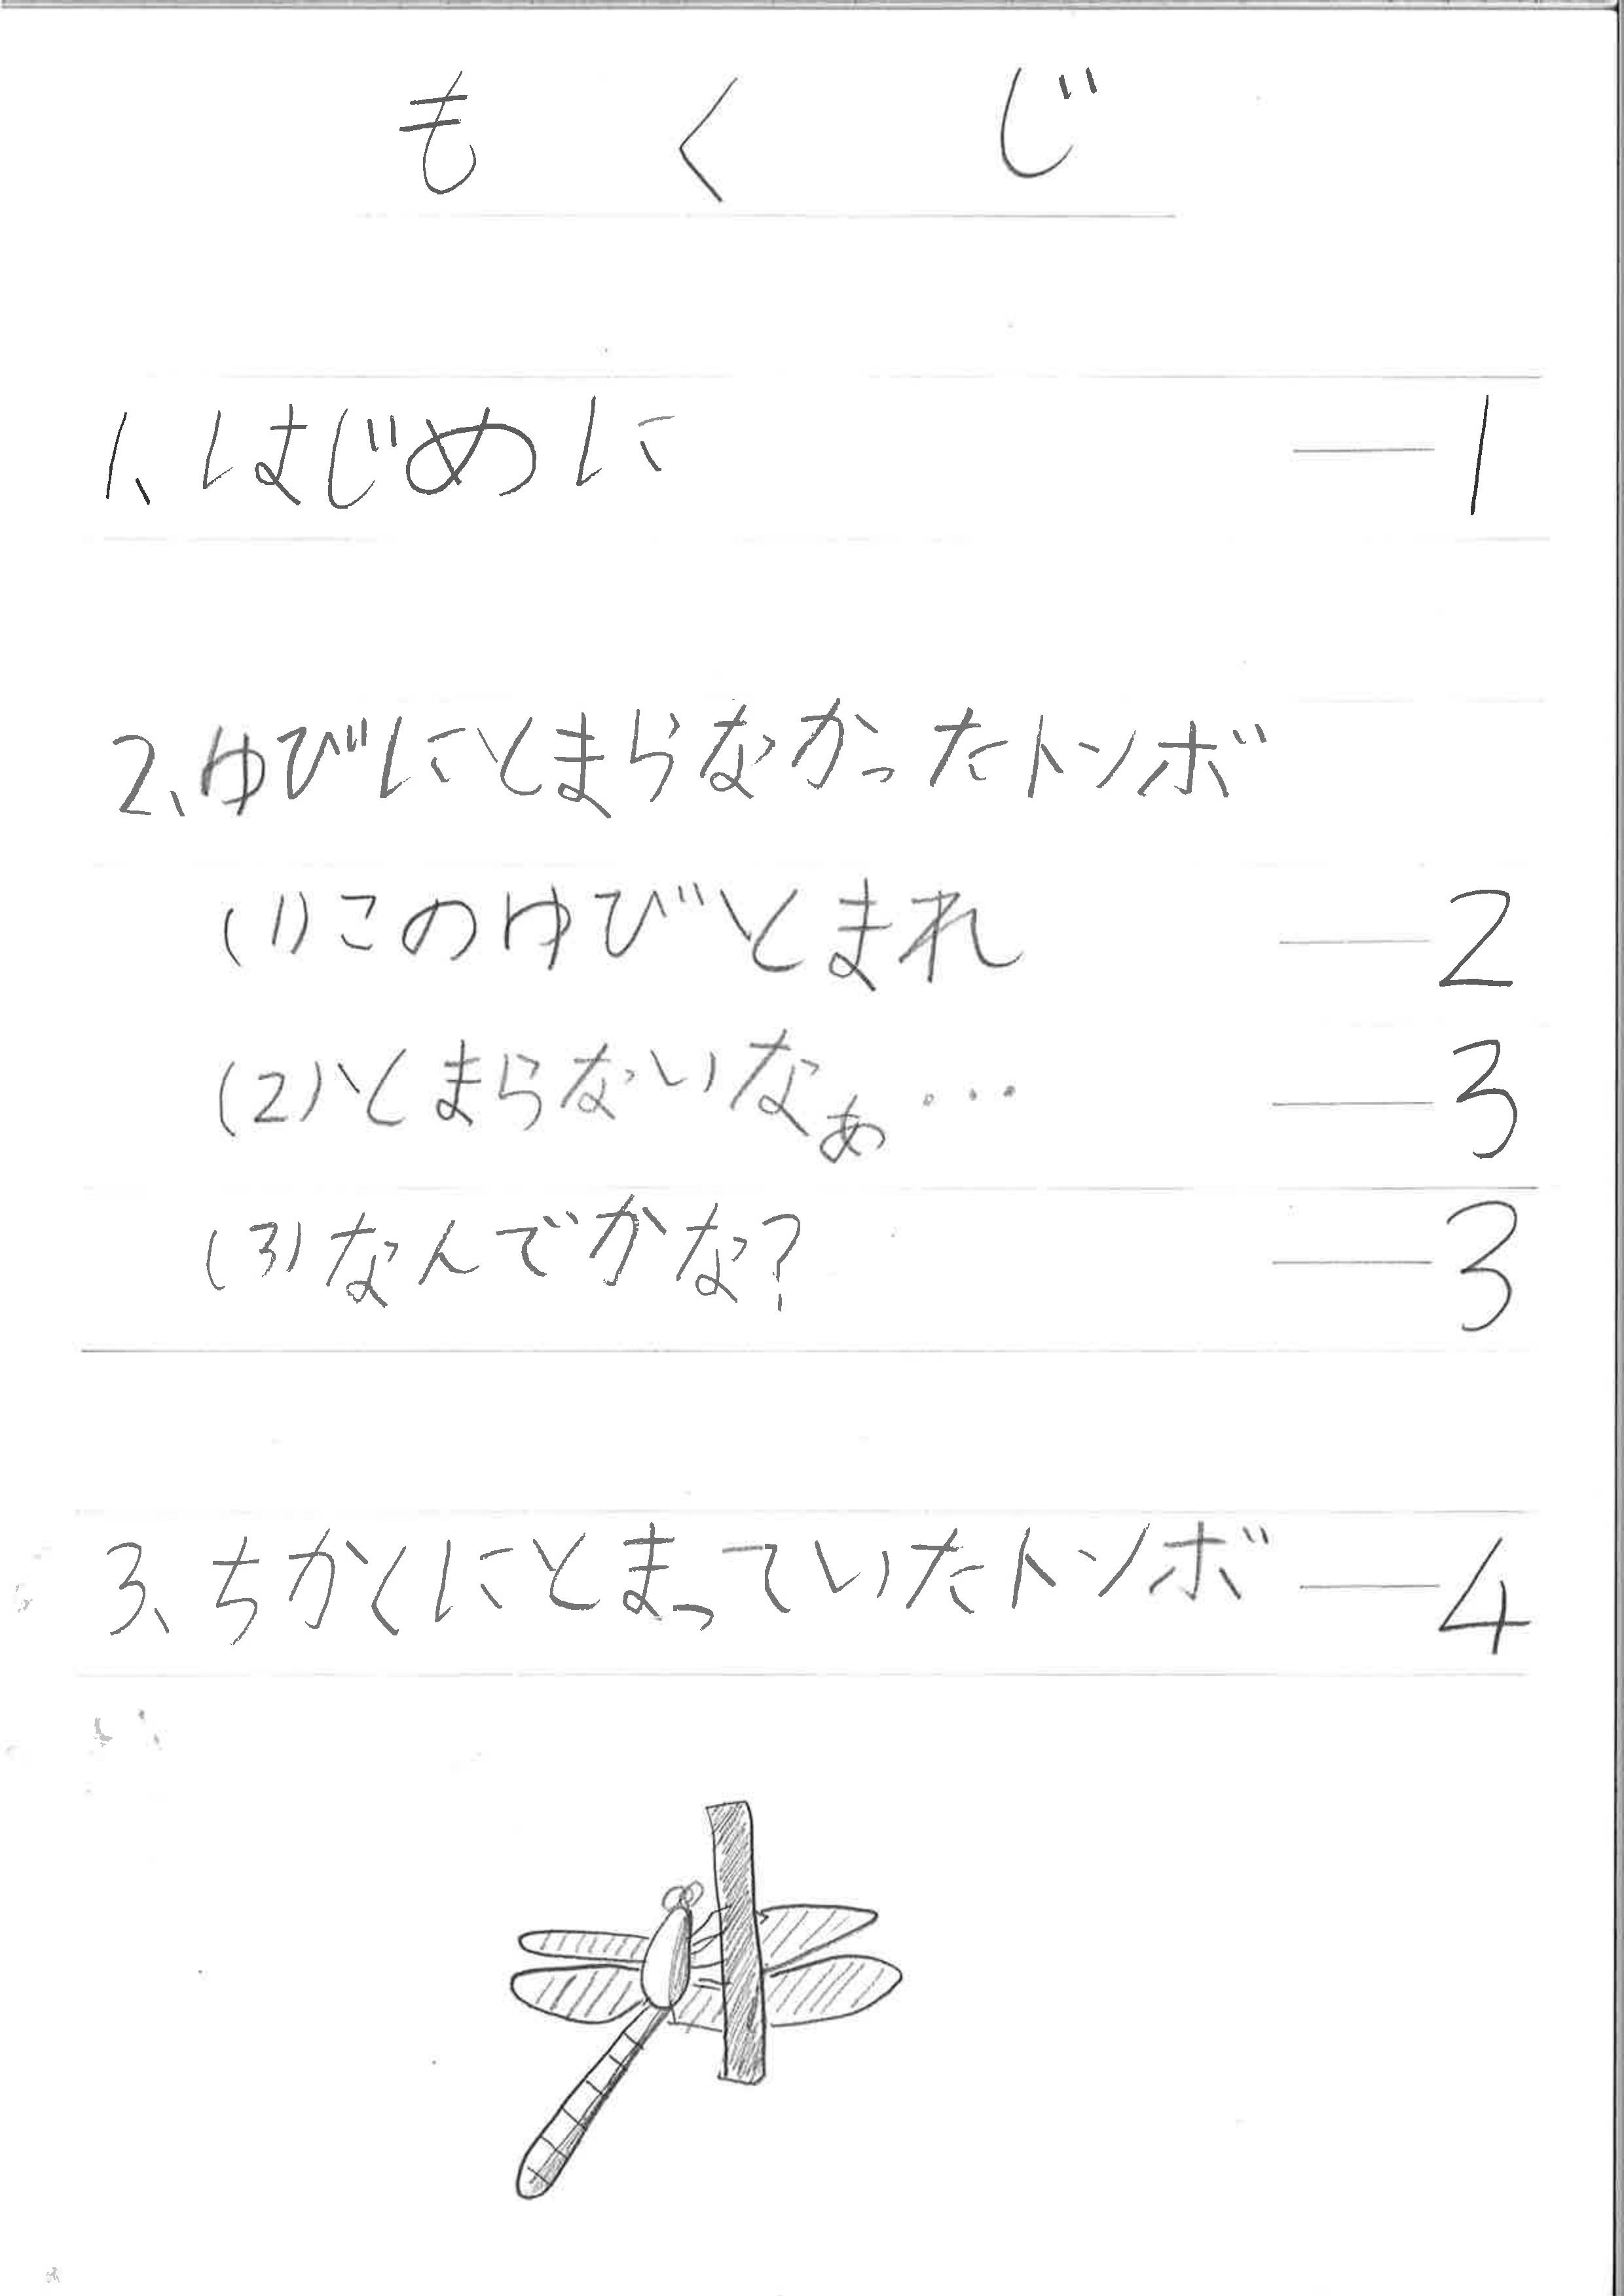 もくじ
1、はじめに ―1
2、ゆびにとまらなかったトンボ
(1)このゆびとまれ ―2
(2)とまらないなぁ… ―3
(3)なんでかな? ―3
3、ちかくにとまっていたトンボ ―4